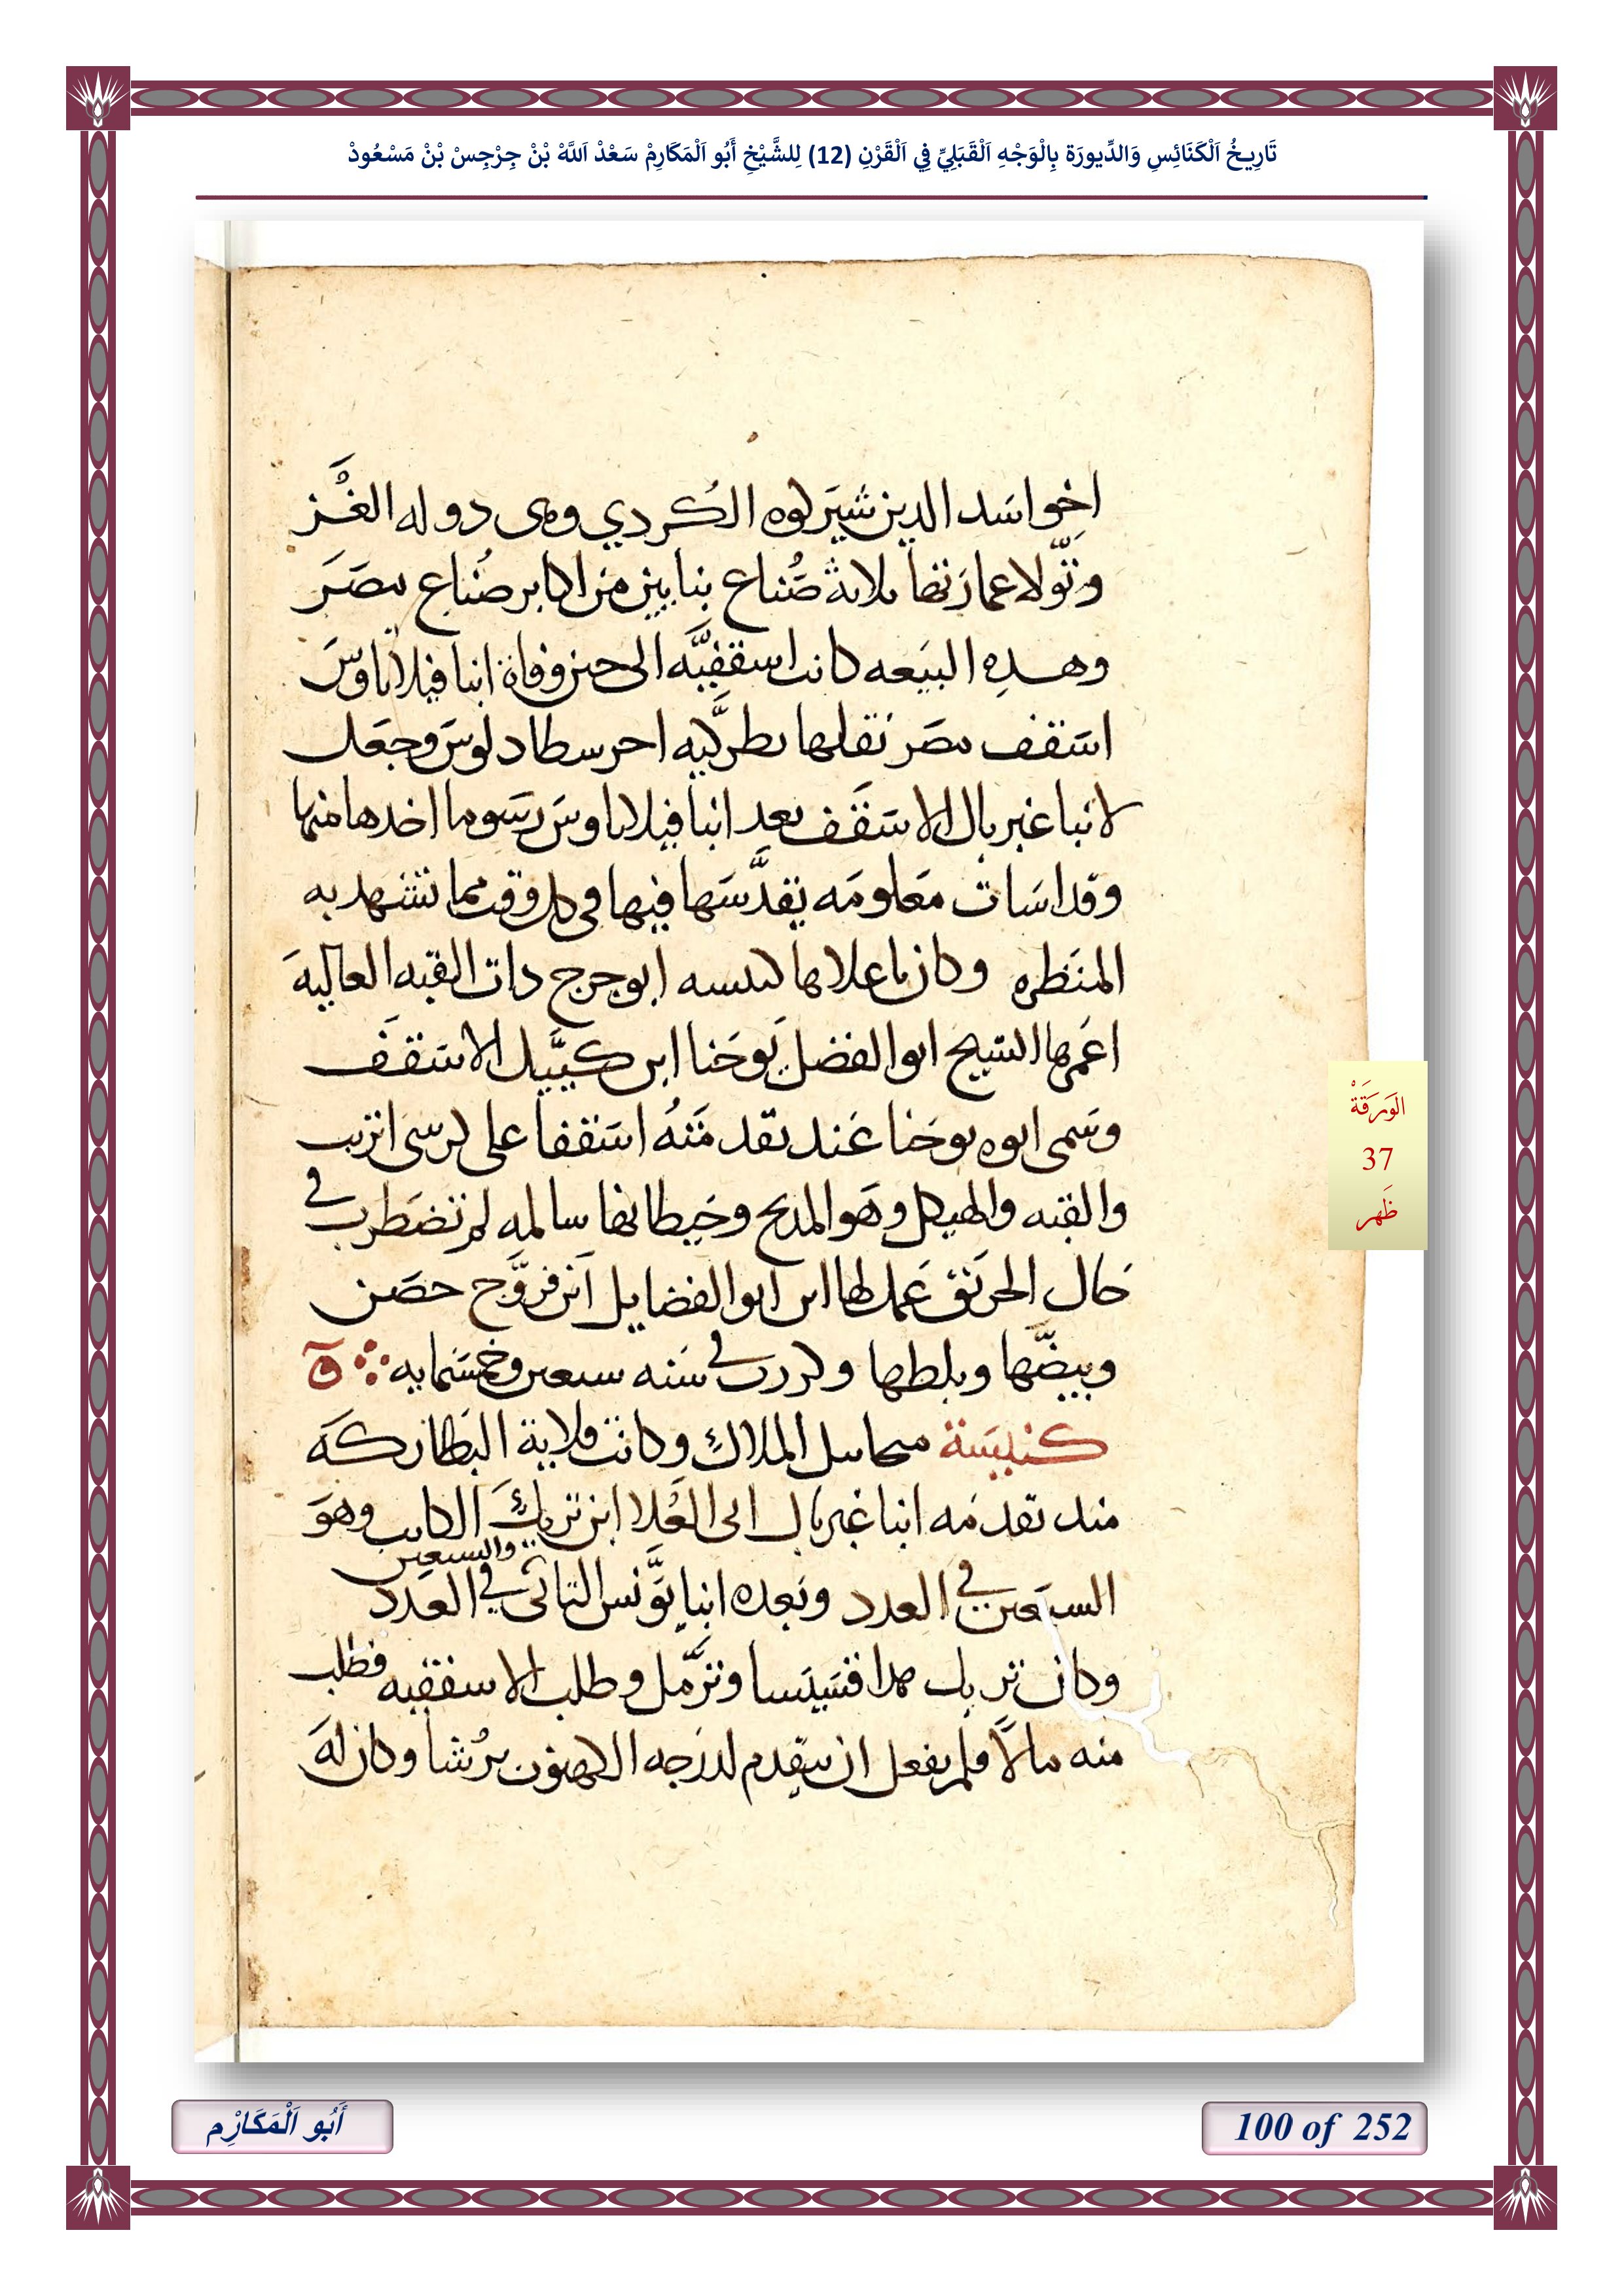 تَارِيخُ اَلْكَنَائِسِ وَالدِّيورَة بِالْوَجْهِ اَلْقَبَلِيِّ فِي اَلْقَرْنِ (12) لِلشَّيْخِ أَبُو اَلْمَكَارِمْ سَعْدْ اَللَّهْ بْنْ جِرْجِسْ بْنْ مَسْعُودْ
اخو اسَد الدين شيَركوه الكُردي وهى دوله الغُز
وتَولا عمارَتها ثلاثة صُناع بنايين من اكابر صُناع مصَر
وهده البيَعه كانت اسقفيَّه الى حين وفاة انبا فيلاثاوسَ
اسَقف مصَر نقلها بطركيه احرسطادلوسَ وجعَل
لانبا غبريال الاسَقَف بعد انبا فيلاثاوسَ رسَوما اخدها منها
وقداسَات مَعلومَه يقدَّسَها فيها فى كل وقت مما تشهد به
المنَظره وكان باعلاها كنيسه ابو جرج دات القبه العاليهَ
اعَمرها الشيخ ابو الفضل يَوحَنا ابن كييَّل الاسَقَف
وسَمى ابوه يوحَنا عَند تقدمَتهُ اسَقفا على كرسى اتريب
والقبه والهيكل وهَو المدبح وحَيطانها سالمه لم تضَطرب في
حَال الحريَق عَمل لها ابن ابو الفضايل ابَن فروَّج حصَن
وبيضَّها وبلطها وكررت في سَنه سبعين وخمسَمايه ∴ ة
كنيسَة ميخاييل الملاك وكانت قلاية البَطاركَه
مند تقدمَه انبا غبريال ابى العُلا ابن تريكَ الكاتب وهوَ
السبَعين في العدد وبَعده انبا يوَّنس التانى والسبعين في العَدد
وكان تريك هدا قسَيسا وترَّمل وطلب الاسقفيه فطلب
منه مالاً فلم يفعل ان يتقدم لدرَجه الكهنوت برُشا وكان لهَ
الوَرَقَةْ
37
ظَهر
أَبُو اَلْمَكَارِْم
100 of 252